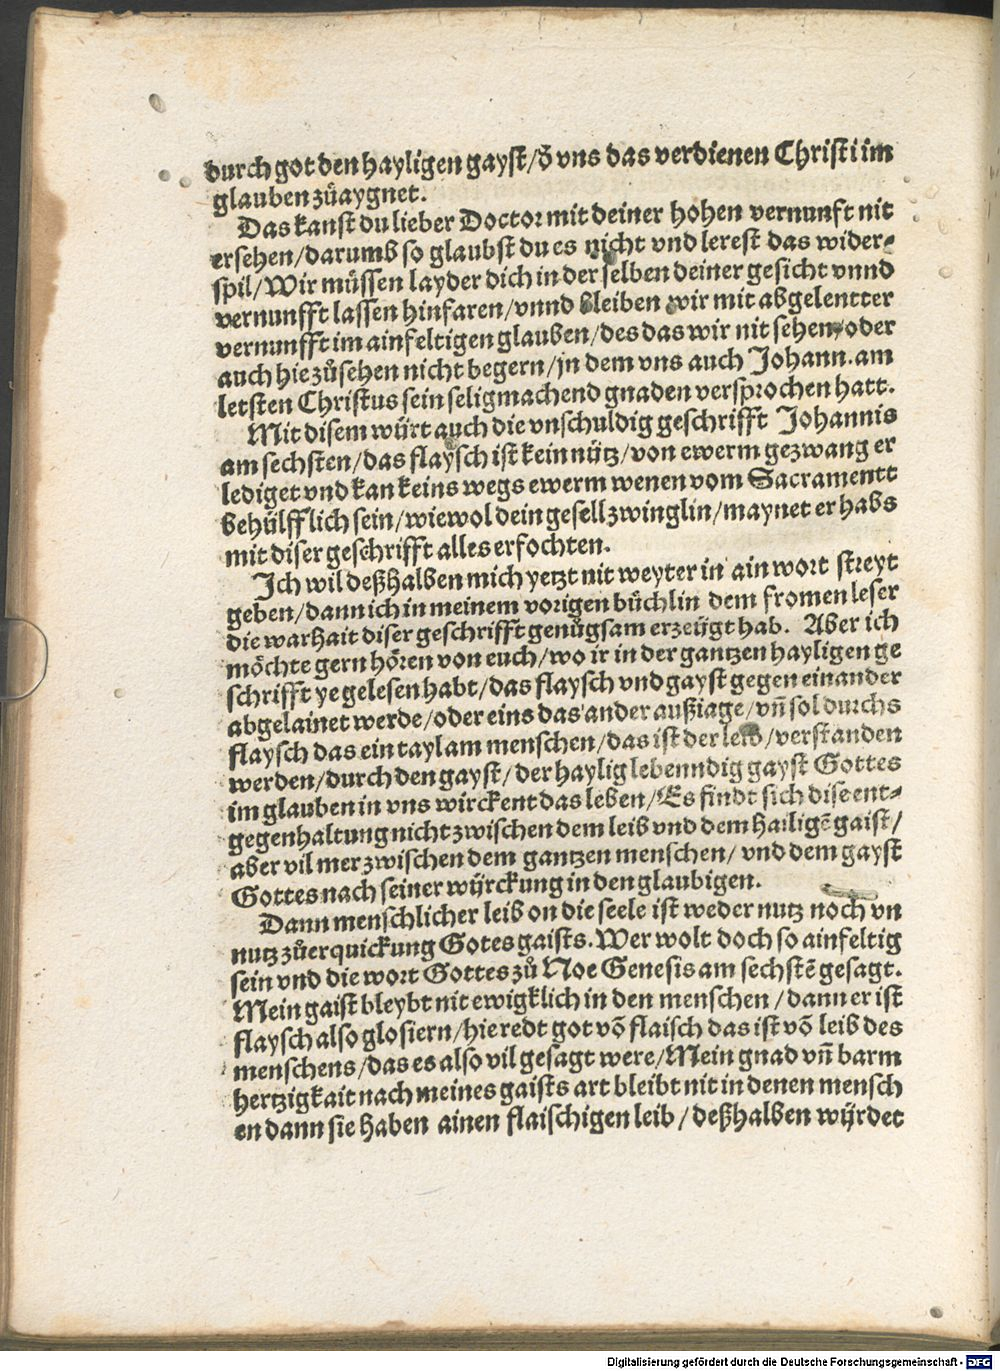 durch got den hayligen gayst/ď vns das verdienen Christi im
glauben zůaygnet.
Das kanst du lieber Doctor mit deiner hohen vernunft nit
ersehen/darumb so glaubst du es nicht vnd lerest das wider⸗
spil/Wir müssen layder dich in der selben deiner gesicht vnnd
vernunfft lassen hinfaren/vnnd bleiben wir mit abgelentter
vernunfft im ainfeltigen glauben/des das wir nit sehen/oder
auch hie zůsehen nicht begern/jn dem vns auch Johann. am
letsten Christus sein seligmachend gnaden versprochen hatt.
Mit disem würt auch die vnschuldig geschrifft Johannis
am sechsten/das flaysch ist kein nütz/von ewerm gezwang er
lediget vnd kan keins wegs ewerm wenen vom Sacramentt
behülfflich sein/wiewol dein gesell zwinglin/maynet er habs
mit diser geschrifft alles erfochten.
Ich wil deßhalben mich yetzt nit weyter in ain wort streyt
geben/dann ich in meinem vorigen büchlin dem fromen leser
die warhait diser geschrifft genůgsam erzeügt hab. Aber ich
möchte gern hören von euch/wo ir in der gantzen hayligen ge
schrifft ye gelesen habt/das flaysch vnd gayst gegen einander
abgelainet werde/oder eins das ander außiage/vñ sol durchs
flaysch das ein tayl am menschen/das ist der leib/verstanden
werden/durch den gayst/der haylig lebenndig gayst Gottes
im glauben in vns wirckent das leben/Es findt sich dise ent⸗
gegenhaltung nicht zwischen dem leib vnd dem hailigē gaist/
aber vil mer zwischen dem gantzen menschen/ vnd dem gayst
Gottes nach seiner wÿrckung in den glaubigen.
Dann menschlicher leib on die seele ist weder nutz noch vn
nutz zůerquickung Gotes gaists. Wer wolt doch so ainfeltig
sein vnd die wort Gottes zů Noe Genesis am sechstē gesagt.
Mein gaist bleybt nit ewigklich in den menschen/dann er ist
flaysch also glosiern/hie redt got vō flaisch das ist vō leib des
menschens/das es also vil gesagt were/Mein gnad vñ barm
hertzigkait nach meines gaists art bleibt nit in denen mensch
en dann sie haben ainen flaischigen leib/deßhalben wÿrdet
Digitalisierung gefördert durch die Deutsche Forschungsgemeinschaft - DFG